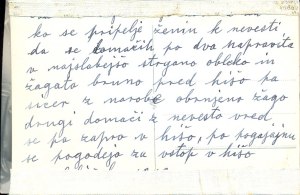 ko se pripelje ženin k nevesti
da se domačih po dva napravita
v najslabejšo strgano obleko in
žagata bruno pred hišo pa
sicer z narobe obrnjeno žago
drugi domači z nevesto vred
se pa zapro v hišo, po pogajanju
se pogodejo za vstop v hišo